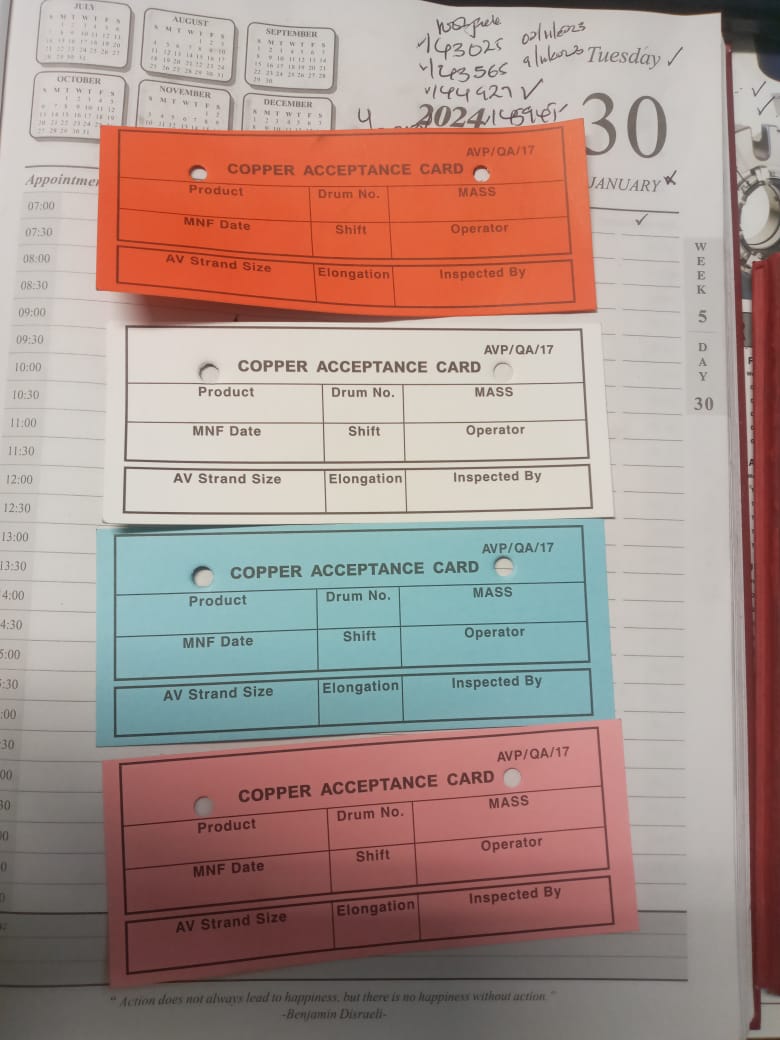 JULY
AUGUST
SEPTEMBER
S M T W T F S
OCTOBER
NOVEMBER
DECEMBER
S M T W T F S
143025
143565
144927
Tuesday
2024
30
JANUARY
Appointme
07:00
07:30
08:00
08:30
09:00
09:30
10:00
10:30
11:00
11:30
12:00
12:30
13:00
13:30
4:00
4:30
5:00
5:30
:00
:30
00
30
WEEK
5
DAY
30
AVP/QA/17
COPPER ACCEPTANCE CARD
Product Drum No. MASS
MNF Date Shift Operator
AV Strand Size Elongation Inspected By
AVP/QA/17
COPPER ACCEPTANCE CARD
Product Drum No. MASS
MNF Date Shift Operator
AV Strand Size Elongation Inspected By
AVP/QA/17
COPPER ACCEPTANCE CARD
Product Drum No. MASS
MNF Date Shift Operator
AV Strand Size Elongation Inspected By
AVP/QA/17
COPPER ACCEPTANCE CARD
Product Drum No. MASS
MNF Date Shift Operator
AV Strand Size Elongation Inspected By
“ Action does not always lead to happiness, but there is no happiness without action.”
-Benjamin Disraeli-